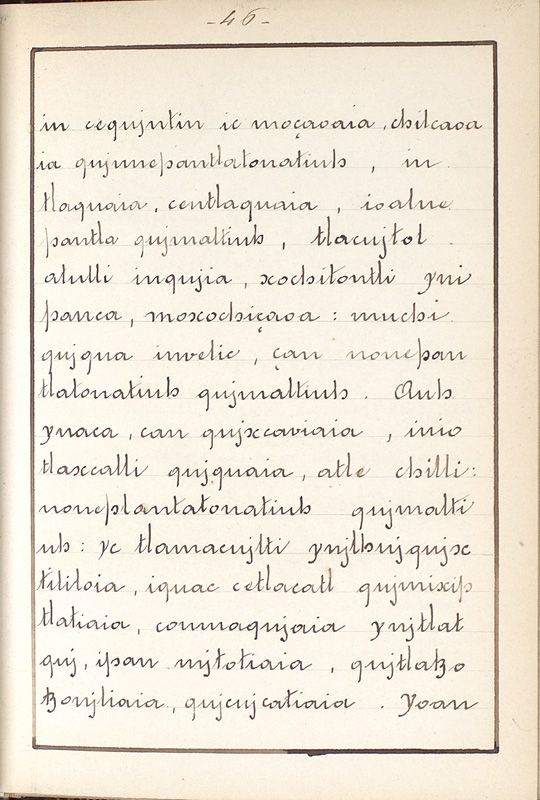 -46-
in cequjntin ic moçaoaia, chilcaoa
ia qujnnepantlatonatiuh, in
tlaquaia, centlaquaia, ioalne
pantla qujmaltiuh, tlacujlol
atulli inqujia, xochitontli yni
panca, moxochiçaoa: muchi
qujqua invelic, çan nonepan
tlatonatiuh qujmaltiuh. Auh
ynaca, can qujxcaviaia, inio
tlaxcalli qujquaia, atle chilli:
noneplantatonatiuh qujmalti
uh: yc tlamacujlti ynjlhujqujx
tililoia, iquac cetlacatl qujmixip
tlatiaia, conmaqujaia ynjtlat
quj, ipan mjtotiaia, qujtlatzo
tzonjliaia, qujcujcatiaia. Yoan